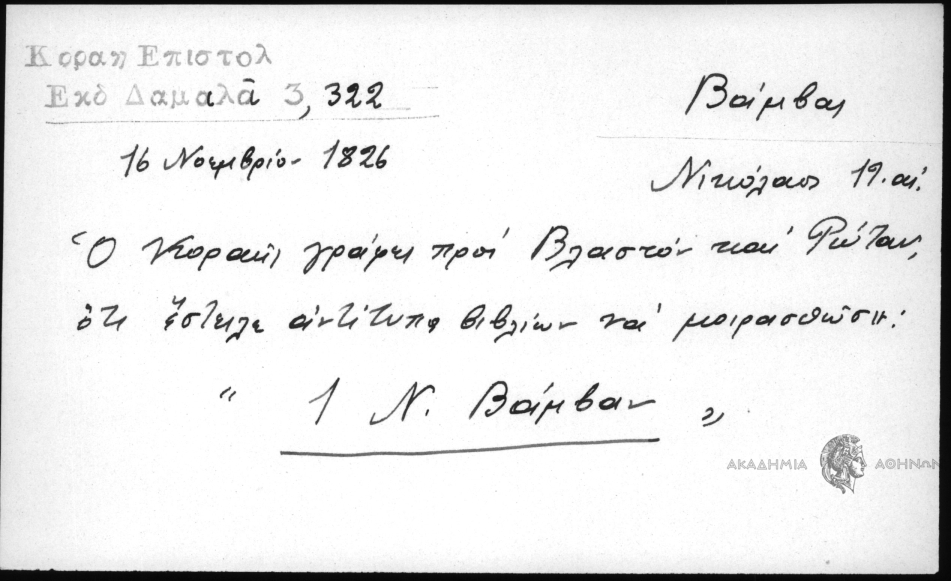 Κοραη Επιστολ
Εκδ Δαμαλᾶ 3, 322
Βάμβας
16 Νοεμβρίου 1826
Νικόλαος 19. αἰ.
Ὁ Κοραῆς γράφει πρὸς Βλαστὸν καὶ Ρώταν,
ὅτι ἔστειλε ἀντίτυπα βιβλίων νὰ μοιρασθῶσιν:
" 1 Ν. Βάμβαν "
ΑΚΑΔΗΜΙΑ ΑΘΗΝΩΝ